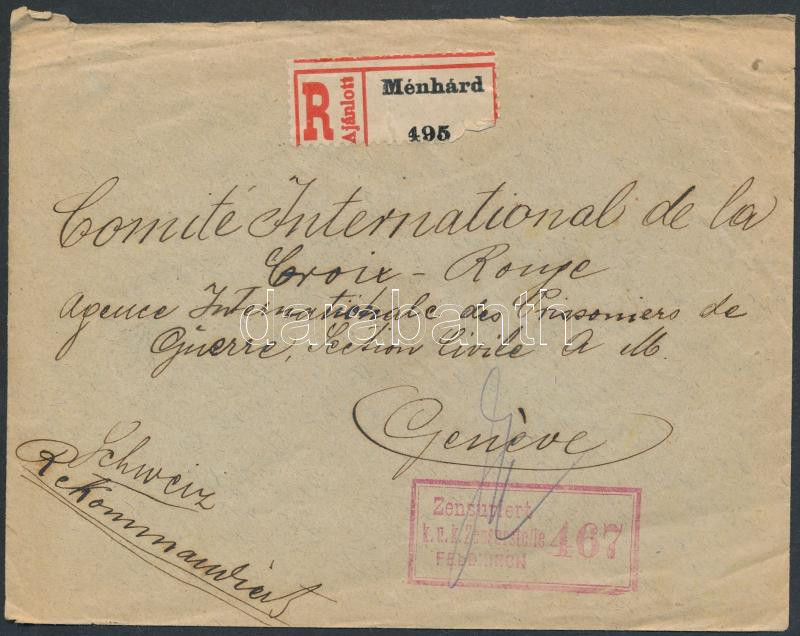 R Ajánlott
Ménhárd
495
Comité International de la
Croix-Rouge
Agence Internationale des Prisonniers de
Guerre, Section Civile A M.
darabanth
Genève
Schweiz
Rekommandiert
Zensuriert
k.u.k. Zensurstelle 467
FELDKIRCH